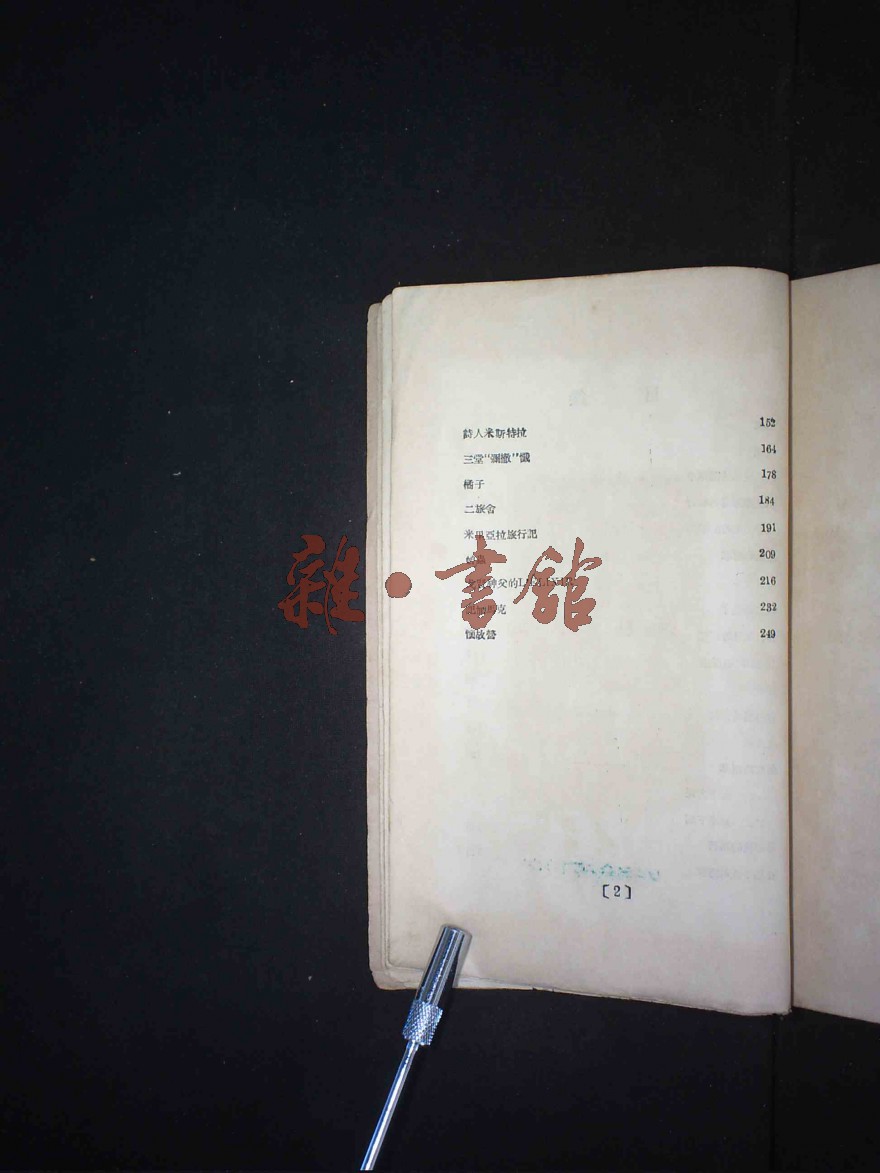 詩人米斯特拉 152
三堂“彌撒”懺 164
橘子 178
二旅舍 184
米里亞拉旅行記 191
蝗蟲 209
神父的 216
232
懷放營 249
雜·書館
[2]